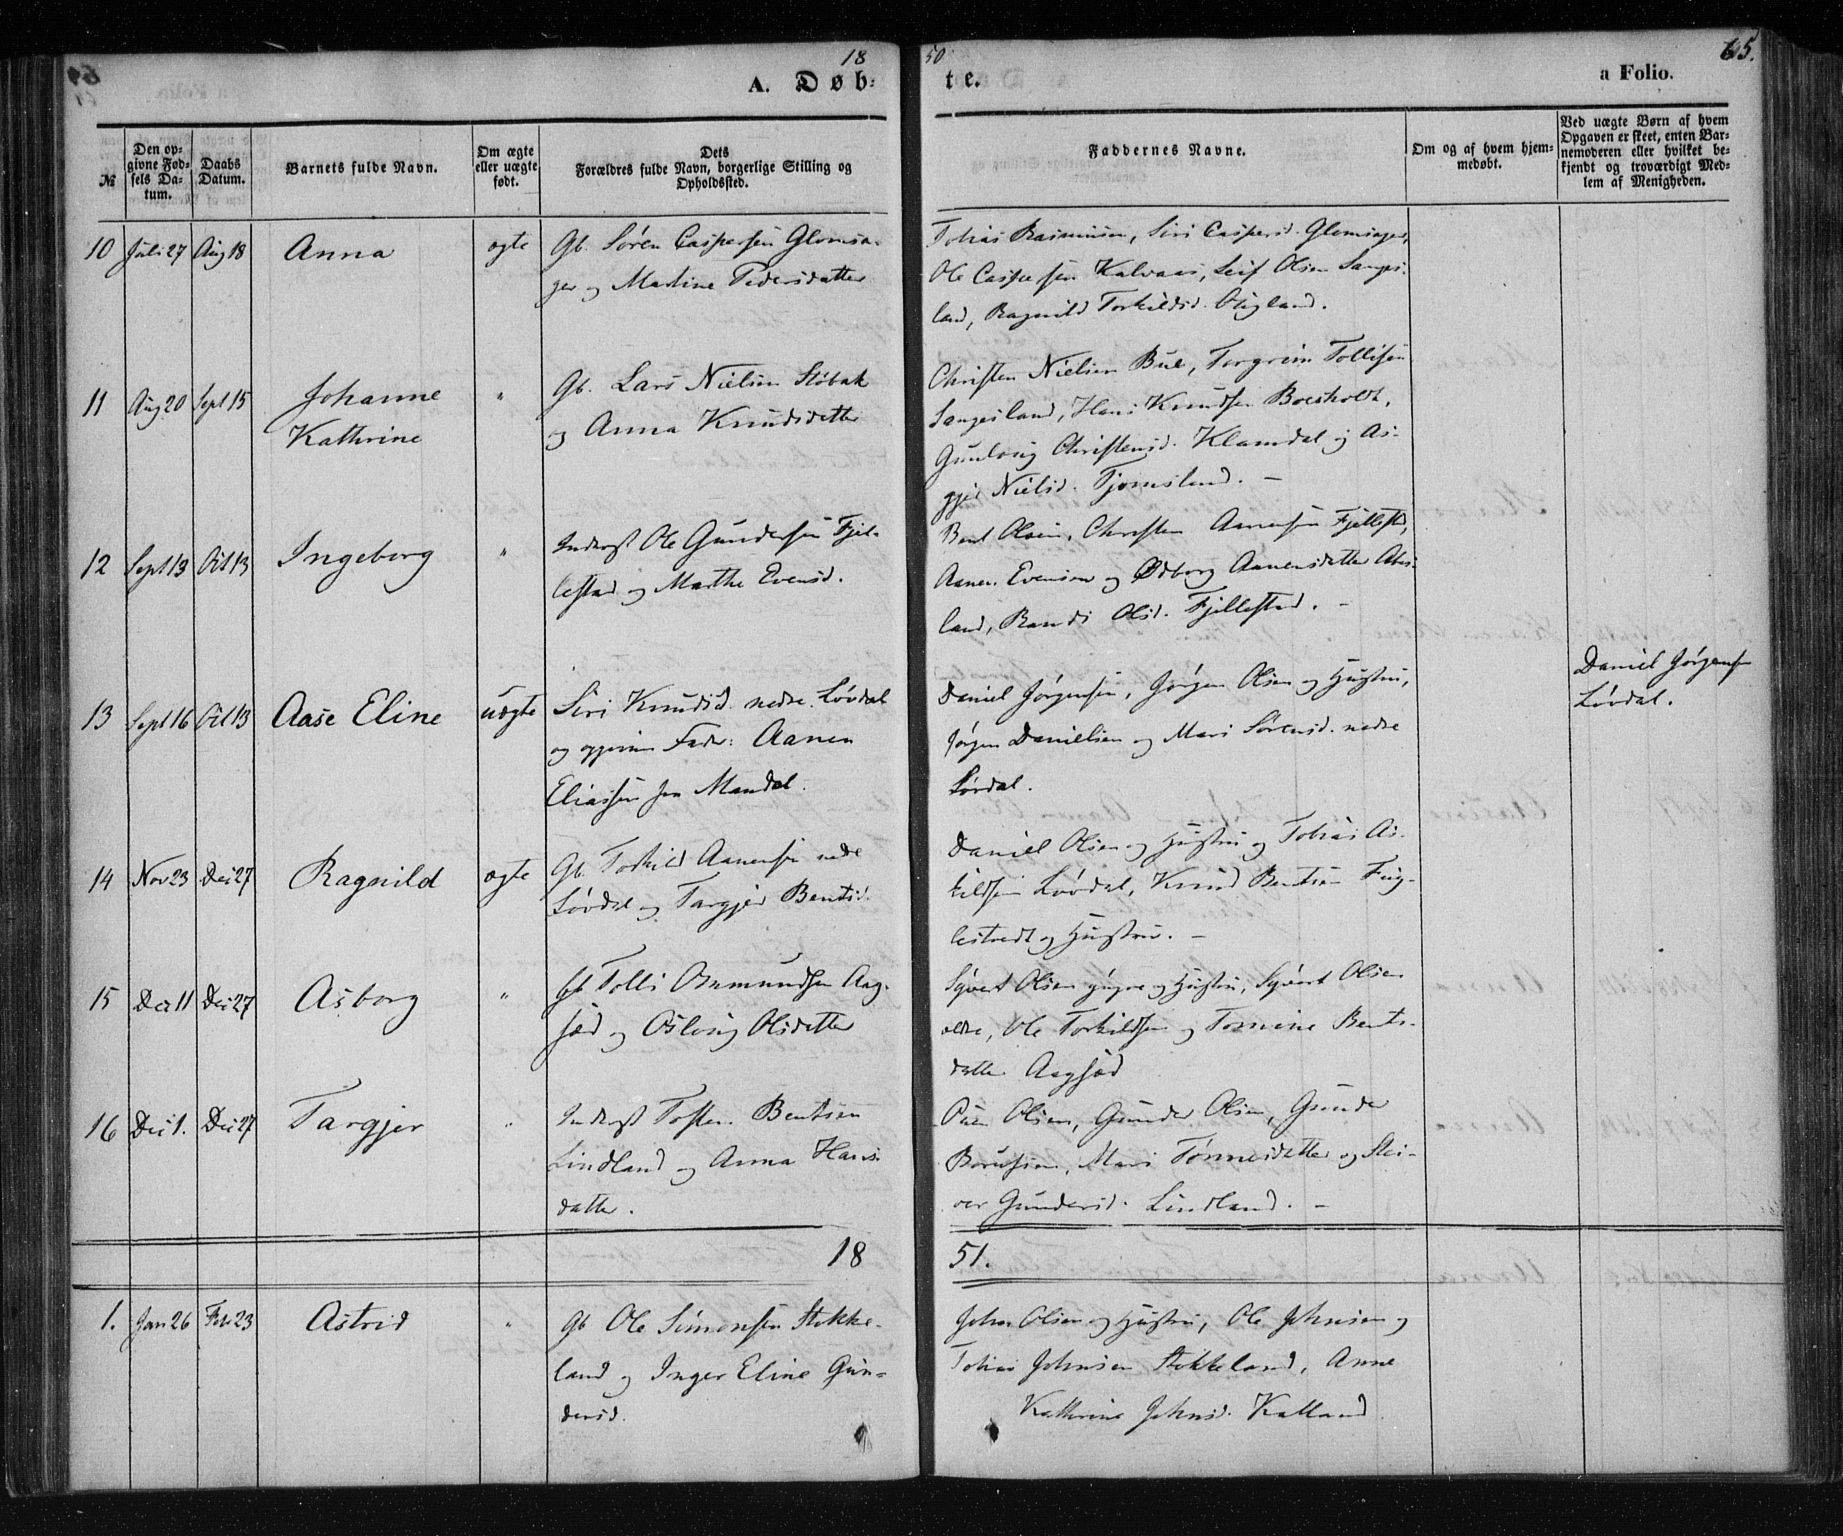 18 50
65.
A. Døb-
te.
a Folio.
№
Den op-
givne Fød-
sels Da-
tum.
Daabs
Datum.
Barnets fulde Navn.
Om ægte
eller uægte
født.
Dets
Forældres fulde Navn, borgerlige Stilling og
Opholdssted.
Faddernes Navne.
Om og af hvem hjem-
medøbt.
Ved uægte Børn af hvem
Opgaven er skeet, enten Bar-
nemoderen eller hvilket be-
kjendt og troværdigt Med-
lem af Menigheden.
10 Juli 27 Aug 18 Anna ægte
Gb. Søren Caspersen Glomsa-
ger og Martine Pedersdatter
Tobias Rasmusen, Siri Caspersd. Glomsager,
Ole Caspersen Kalvaas, Leif Olsen Sanges-
land, Ragnild Torkildsd.
11 Aug 20 Sept 15 Johanne
Kathrine "
Gb. Lars Nielsen Støbak
og Anna Knudsdatter
Christen Nielsen Bue, Torgrim Tollisen
Sangesland, Hans Knudsen Boesholdt,
Gunlaug Christensd. Klamdal og As-
gjer Nielsd. Tjomsland. -
12 Sept 13 Oct 13 Ingeborg "
Inderst Ole Gundersen Fjel-
lestad og Marthe Evensd.
Bent Olsen, Christen Aanensen Fjellestad,
Aanen Evensen og Ødborg Aanensdatter Abes-
land, Randi Olsd. Fjellestad. -
13 Sept 16 Oct 13 Aase Eline uægte
Siri Knudsd. nedre Løvdal
og opgiven Fader: Aanen
Eliassen fra Mandal.
Daniel Jørgensen, Jørgen Olsen og Hustru,
Jørgen Danielsen og Mari Sørensd. nedre
Løvdal.
Daniel Jørgensen
Løvdal.
14 Nov 23 Dec 27 Ragnild ægte
Gb. Torkild Aanensen nedre
Løvdal og Targjer Bentsd.
Daniel Olsen og Hustru og Tobias As-
kildsen Løvdal, Knud Bentsen Fug-
lestvedt og Hustru. -
15 Dec 11 Dec 27 Asborg "
Gb Tolli Osmundsen Aag-
sæd og Oslaug Olsdatter
Syvert Olsen yngre og Hustru, Syvert Olsen
ældre, Ole Torkildsen og Tomine Bents-
datter Aagsæd
16 Dec 1. Dec 27 Targjer "
Inderst Tosten Bentsen
Lindland og Anna Hans-
datter.
Olsen, Gunder Olsen, Gunder
Borusen, Mari Tønnesdatter og Stei-
ver Gundersd. Lindland. -
18 51.
1. Jan 26 Feb 23 Astrid "
Gb Ole Simonsen Stokke-
land og Inger Eline Gun-
dersd.
John Olsen og Hustru, Ole Johnsen og
Tobias Johnsen Stokkeland, Anne
Kathrine Johnsd. Kalland